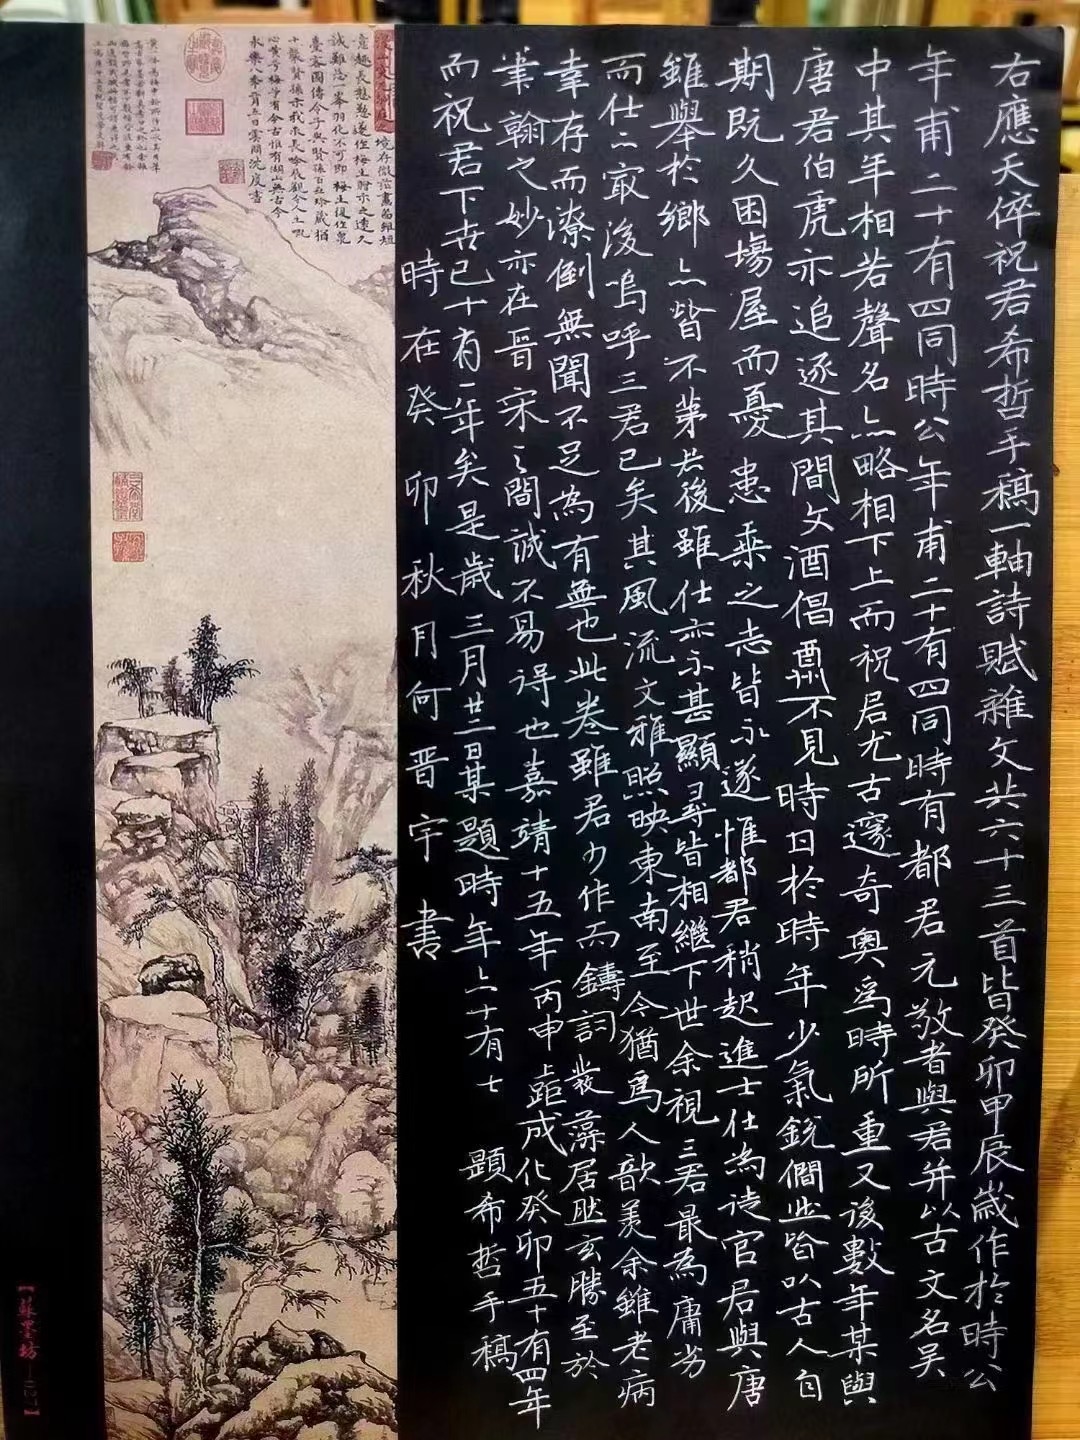 右應天倅祝君希哲手稿一軸詩賦雜文共六十三首皆癸卯甲辰歲作於時公
年甫二十有四同時公年甫二十有四同時有都君元敬者與君并以古文名吴
中其年相若聲名亦略相下上而祝君尤古邃奇奥為時所重又後數年某與
唐君伯虎亦追逐其間文酒倡酬不見時日於時年少氣銳僴然皆以古人自
期既久困場屋而憂患乘之志皆不遂惟都君稍起進士仕為徒官居與唐
雖舉於鄉亦皆不第其後雖仕亦不甚顯尋皆相繼下世余視三君最為庸劣
而仕亦最後嗚呼三君已矣其風流文雅照映東南至今猶為人歆羡余雖老病
幸存而潦倒無聞不足為有無也此卷雖君少作而鑄詞發藻居然玄勝至於
筆翰之妙亦在晉宋之間誠不易得也嘉靖十五年丙申上距成化癸卯五十有四年
而祝君下世已十有一年矣是歲三月廿三日某題時年六十有七 題希哲手稿
時在癸卯秋月何晋宇書
一峯羽化不可即
圖傳令子與賢孫百年珍藏猶
十襲賢孫示我求長吟我觀今人
惟有湖山無古今
永樂八年 五日雲間沈度書
【蘇墨坊】